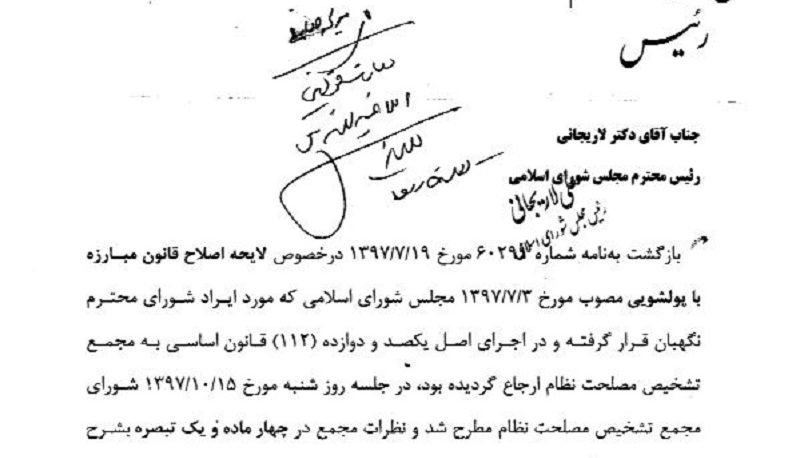 رئیس
جناب آقای دکتر لاریجانی
رئیس محترم مجلس شورای اسلامی
علی لاریجانی
رئیس مجلس شورای اسلامی
بازگشت به‌نامه شماره مورخ ۱۳۹۷/۷/۱۹ درخصوص لایحه اصلاح قانون مبارزه
با پولشویی مصوب مورخ ۱۳۹۷/۷/۳ مجلس شورای اسلامی که مورد ایراد شورای محترم
نگهبان قرار گرفته و در اجرای اصل یکصد و دوازده (۱۱۲) قانون اساسی به مجمع
تشخیص مصلحت نظام ارجاع گردیده بود، در جلسه روز شنبه مورخ ۱۳۹۷/۱۰/۱۵ شورای
مجمع تشخیص مصلحت نظام مطرح شد و نظرات مجمع در چهار ماده و یک تبصره بشرح